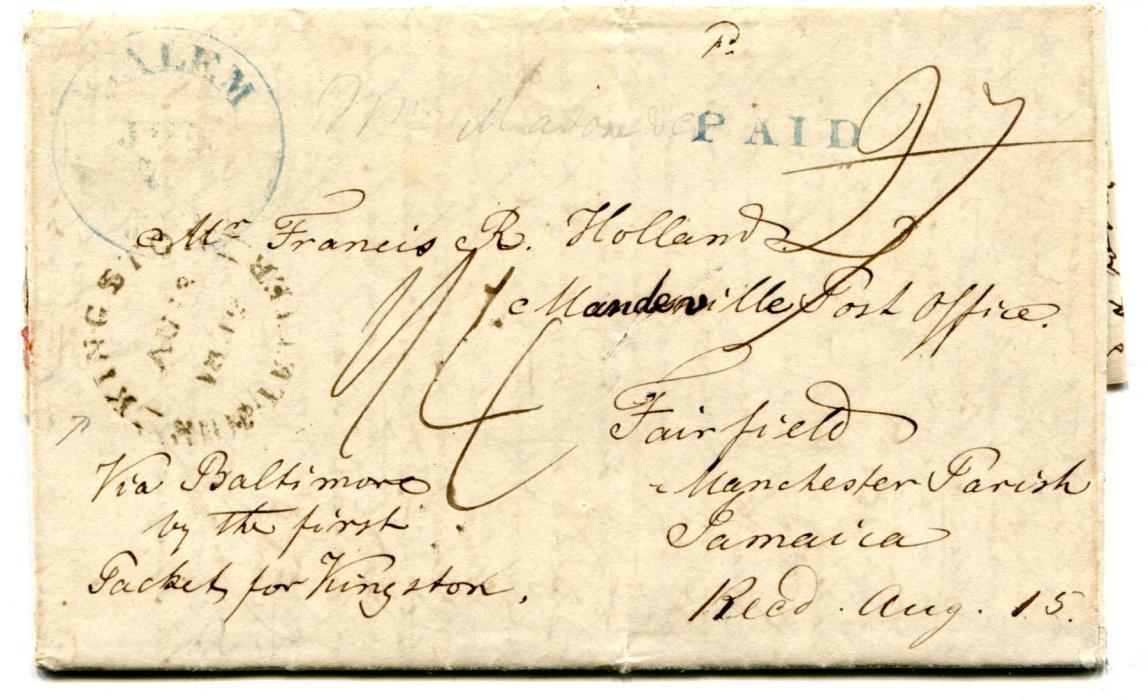 Pd
SALEM
JUL
7
N.C.
PAID
27
Mr Francis R. Holland
Mandeville Post Office.
KINGSTON
SHIP LETTER
AU 13
1841
1/4
Fairfield
Manchester Parish
Jamaica
Via Baltimore
by the first
Packet for Kingston.
Recd. Aug. 15.